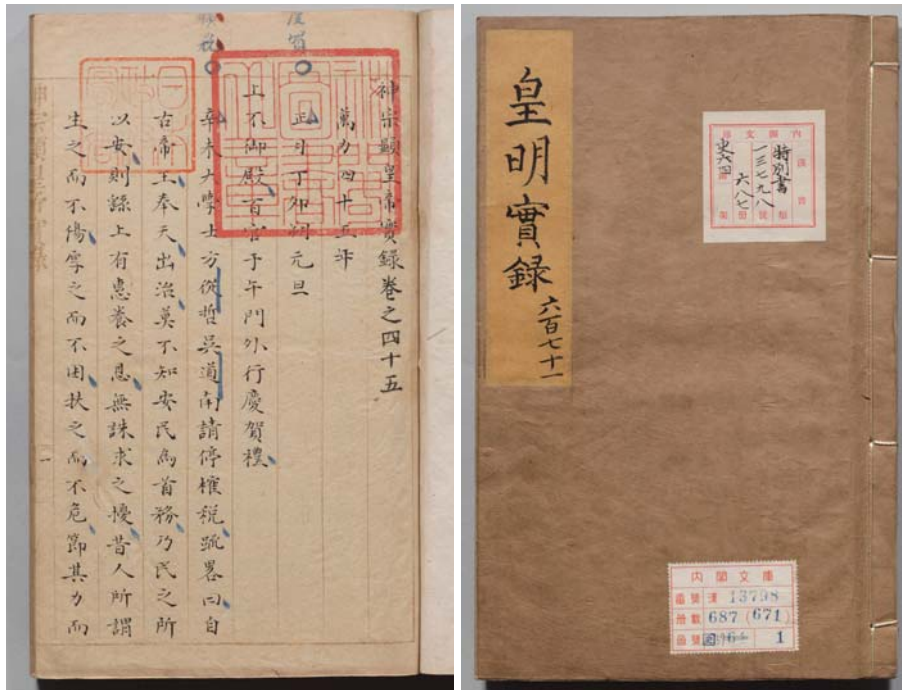 神宗顯皇帝實錄卷之四十五
萬力四十五年
正月丁卯朔元旦
上不御殿百官于午門外行慶賀禮
辛未大學士方從哲吳道南請停榷稅疏畧曰自
古帝王奉天出治莫不知安民為首務乃民之所
以安則繇上有惠養之恩無誅求之擾昔人所謂
生之而不傷厚之而不困扶之而不危節其力而
皇明實録 六百七十一
内閣文庫
特別書
一三七九八
六八七
内閣文庫
番號 漢 13798
冊數 687 (671)
函號 1